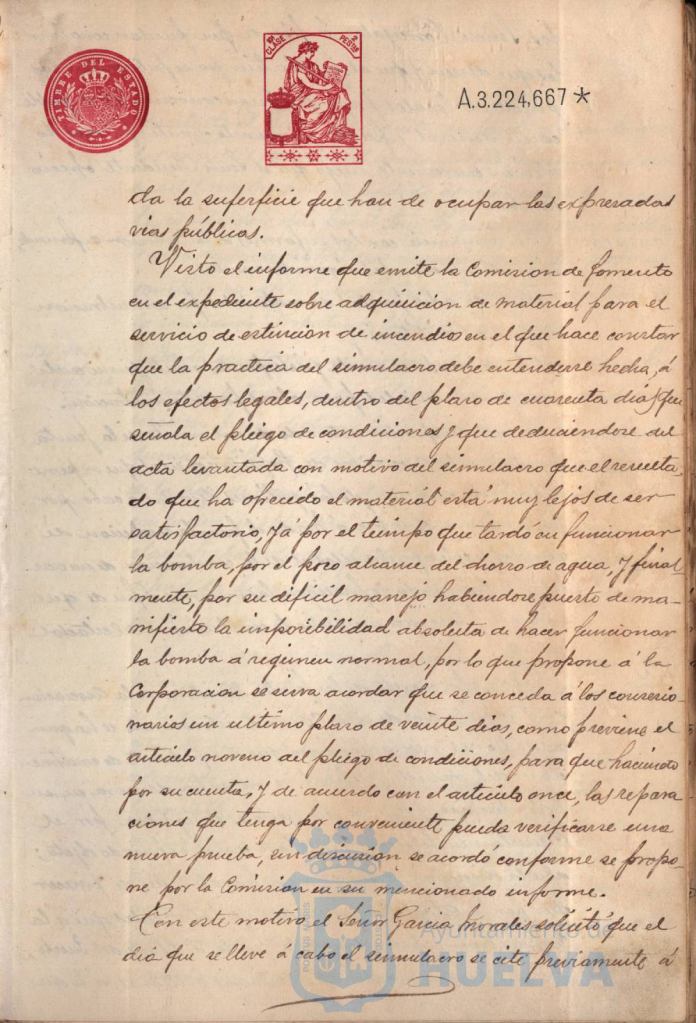 TIMBRE DEL ESTADO
CLASE 2 PESTS
A.3.224,667 *
da la superficie que han de ocupar las expresadas
vias públicas.
Visto el informe que emite la Comision de Fomento
en el expediente sobre adquisicion de material para el
servicio de estincion de incendios en el que hace constar
que la practica del simulacro debe entenderse hecha, á
los efectos legales, dentro del plazo de cuarenta dias que
señala el pliego de condiciones y que deduciendose del
acta levantada con motivo del simulacro que el resulta-
do que ha ofrecido el material está muy lejos de ser
satisfactorio, yá por el tiempo que tardó en funcionar
la bomba, por el poco alcance del chorro de agua, y final-
mente, por su dificil manejo habiendose puesto de ma-
nifiesto la imposibilidad absoluta de hacer funcionar
la bomba á regimen normal, por lo que propone á la
Corporacion se sirva acordar que se conceda á los concesio-
narios un ultimo plazo de veinte dias, como previene el
articulo noveno del pliego de condiciones, para que haciendo
por su cuenta, y de acuerdo con el articulo once, las repara
ciones que tenga por conveniente pueda verificarse una
nueva prueba, sin discusion se acordó conforme se propo-
ne por la Comision en su mencionado informe.
Con este motivo el Señor Garcia Morales solicitó que el
dia que se lleve á cabo el simulacro se cite previamente á
Ayuntamiento de
HUELVA